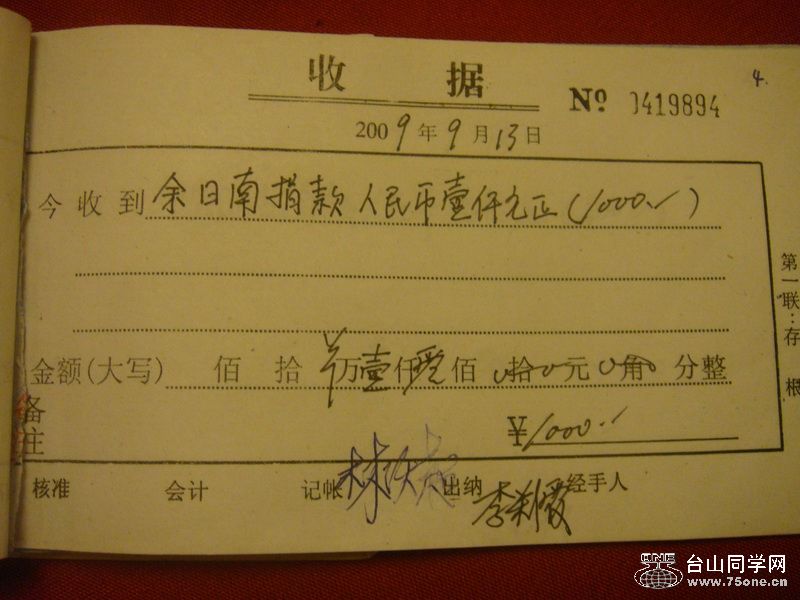 4.
收 据
Nº 0419894
2009年9月13日
今收到余日南捐款人民币壹仟元正(1000.-)
金额(大写) 佰 拾 万壹仟零佰 0拾0元0角0分整
备注
¥1000.-
核准 会计 记帐 出纳 经手人
第一联:存根
台山同学网
www.75one.cn